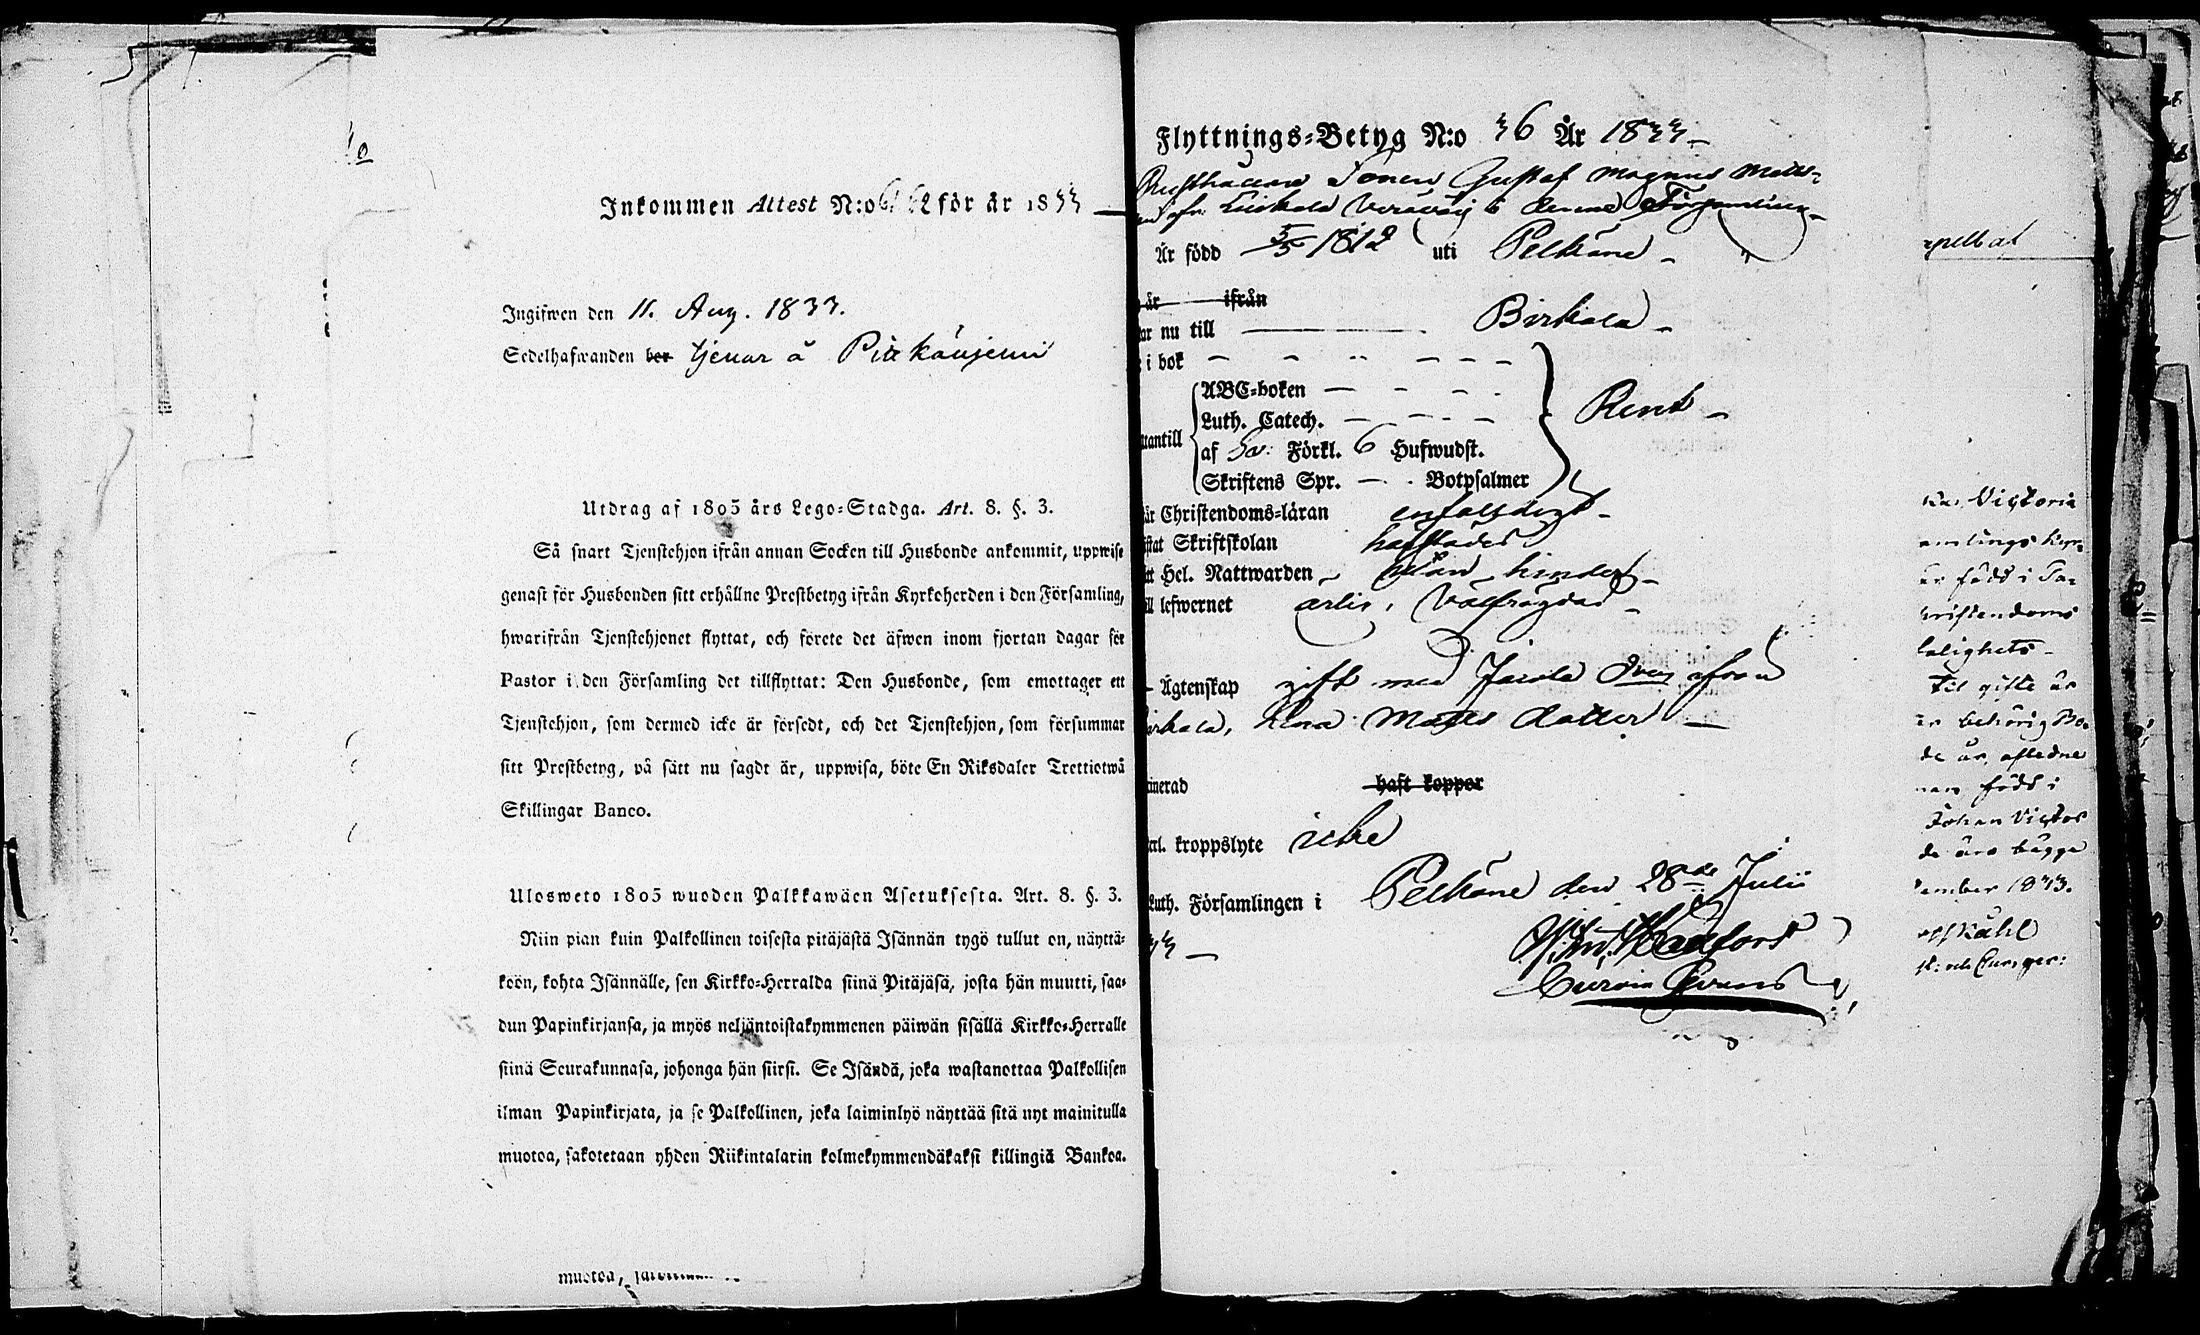 Inkommen Attest N:o 62 för år 1833
Ingifwen den 11. Aug. 1833.
Sedelhafwanden bor tjenar å
Utdrag af 1805 års Lego-Stadga. Art. 8. §. 3.
Så snart Tjenstehjon ifrån annan Socken till Husbonde ankommit, uppwise
genast för Husbonden sitt erhållne Prestbetyg ifrån Kyrkoherden i den Församling,
hwarifrån Tjenstehjonet flyttat, och förete det äfwen inom fjortan dagar för
Pastor i den Församling det tillflyttat: Den Husbonde, som emottager ett
Tjenstehjon, som dermed icke är försedt, och det Tjenstehjon, som försummar
sitt Prestbetyg, på sätt nu sagdt är, uppwisa, böte En Riksdaler Trettiotwå
Skillingar Banco.
Ulosweto 1805 wuoden Palkkawäen Asetuksesta. Art. 8. §. 3.
Niin pian kuin Palkollinen toisesta pitäjästä Isännän tygö tullut on, näyttä-
köön, kohta Isännälle, sen Kirkko-Herralda siinä Pitäjäsä, josta hän muutti, saa-
dun Papinkirjansa, ja myös neljäntoistakymmenen päiwän sisällä Kirkko-Herralle
siinä Seurakunnasa, johonga hän siirsi. Se Isändä, joka wastanottaa Palkollisen
ilman Papinkirjata, ja se Palkollinen, joka laiminlyö näyttää sitä nyt mainitulla
muotoa, sakotetaan yhden Riikintalarin kolmekymmendäkaksi killingiä Bankoa.
muotoa,
Flyttnings-Betyg N:o 36 År 1833
Rusthållare Sonen Gustaf Magnus Matts-
denne Församling
Är född 5/5 1812 uti Pelkäne
är ifrån
nu till Birkala
i bok
ABC-boken
Luth. Catech. Rent
antill
af Sv: Förkl. 6 Hufwudst.
Skriftens Spr. Botpsalmer
Christendoms-läran enfalldigt
Skriftskolan
Hel. Nattwarden utan hinder
lefwernet ärlig, välfrägdad
Ägtenskap gift med Piga ifrån
Lena Matts dotter
inerad haft koppor
kroppslyte icke
Luth. Församlingen i Pelkäne den 28de Julii
33
apell af
Victoria
amlings Kyr-
är född i Ta-
hristendoms
salighets-
til gifte är
är behörig
de är afledne
född i
Johan Victor
de äro bägge
ember 1833.